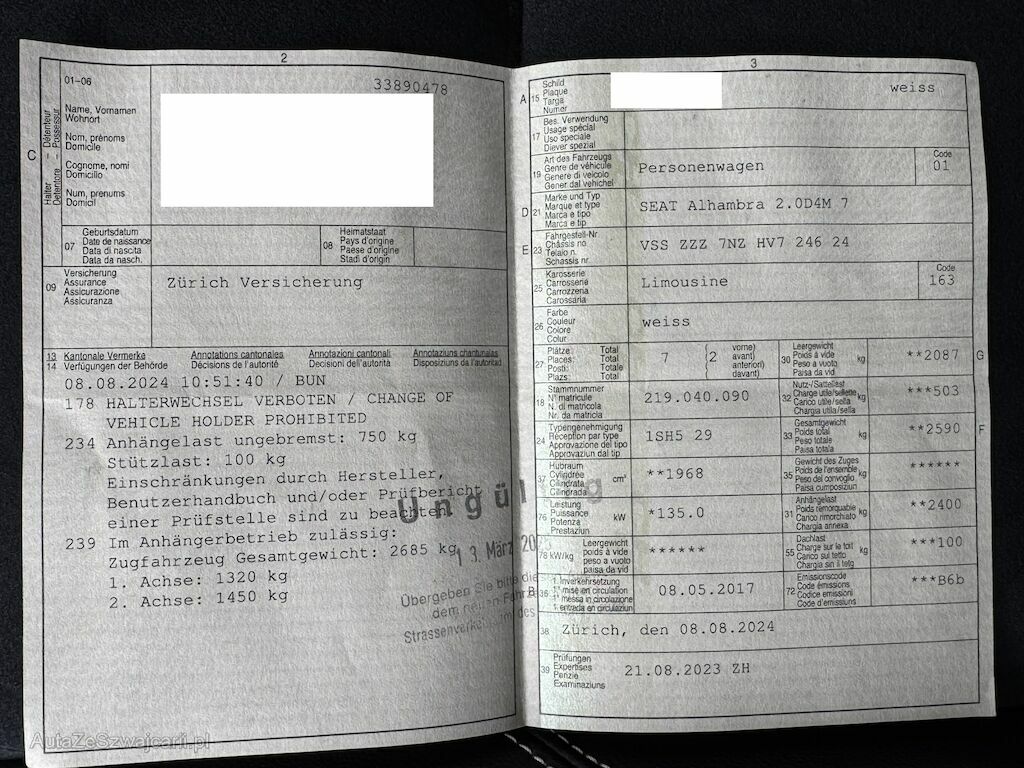 2
01-06
33890478
C
Halter - Détenteur
Detentore - Possessur
Name, Vornamen
Wohnort
Nom, prénoms
Domicile
Cognome, nomi
Domicilio
Num, prenums
Domicil
07
Geburtsdatum
Date de naissance
Data di nascita
Data da nasch.
08
Heimatstaat
Pays d'origine
Paese d'origine
Stadi d'origin
09
Versicherung
Assurance
Assicurazione
Assicuranza
Zürich Versicherung
13
14
Kantonale Vermerke
Verfügungen der Behörde
Annotations cantonales
Décisions de l'autorité
Annotazioni cantonali
Decisioni dell'autorità
Annotaziuns chantunalas
Disposiziuns da l'autoritad
08.08.2024 10:51:40 / BUN
178 HALTERWECHSEL VERBOTEN / CHANGE OF
VEHICLE HOLDER PROHIBITED
234 Anhängelast ungebremst: 750 kg
Stützlast: 100 kg
Einschränkungen durch Hersteller,
Benutzerhandbuch und/oder Prüfbericht
einer Prüfstelle sind zu beachten
239 Im Anhängerbetrieb zulässig:
Zugfahrzeug Gesamtgewicht: 2685 kg
1. Achse: 1320 kg
2. Achse: 1450 kg
Ungültig
Übergeben Sie bitte die
dem neuen
3
A
15
Schild
Plaque
Targa
Numer
weiss
17
Bes. Verwendung
Usage spécial
Uso speciale
Diever spezial
19
Art des Fahrzeugs
Genre de véhicule
Genere di veicolo
Gener dal vehichel
Personenwagen
Code
01
D
21
Marke und Typ
Marque et type
Marca e tipo
Marca e tip
SEAT Alhambra 2.0D4M 7
E
23
Fahrgestell-Nr
Châssis no
Telaio n.
Schassis nr.
VSS ZZZ 7NZ HV7 246 24
25
Karosserie
Carrosserie
Carrozzeria
Carossaria
Limousine
Code
163
26
Farbe
Couleur
Colore
Colur
weiss
27
Plätze: Total
Places: Total
Posti: Totale
Plazs: Total
7
(2
vorne)
avant)
anteriori)
davant)
30
Leergewicht
Poids à vide
Peso a vuoto
Paisa da vid
kg
**2087
G
18
Stammnummer
N° matricule
N. di matricola
Nr. da matricla
219.040.090
32
Nutz-/Sattellast
Charge utile/sellette
Carico utile/sella
Chargia utila/sella
kg
***503
24
Typengenehmigung
Réception par type
Approvazione del tipo
Approvaziun dal tip
1SH5 29
33
Gesamtgewicht
Poids total
Peso totale
Paisa totala
kg
**2590
F
37
Hubraum
Cylindrée
Cilindrata
Cilindrada
cm³
**1968
35
Gewicht des Zuges
Poids de l'ensemble
Peso del convoglio
Paisa cumposiziun
kg
******
76
Leistung
Puissance
Potenza
Prestaziun
kW
*135.0
31
Anhängelast
Poids remorquable
Carico rimorchiato
Chargia annexa
kg
**2400
78 kW/kg
Leergewicht
poids à vide
peso a vuoto
paisa da vid
******
55
Dachlast
Charge sur le toit
Carico sul tetto
Chargia sin il tetg
kg
***100
B
36
1. Inverkehrsetzung
1re mise en circulation
1a messa in circolazione
1. entrada en circulaziun
08.05.2017
72
Emissionscode
Code émissions
Codice emissioni
Code d'emissiuns
***B6b
38
Zürich, den 08.08.2024
39
Prüfungen
Expertises
Perizie
Examinaziuns
21.08.2023 ZH
AutaZeSzwajcarii.pl